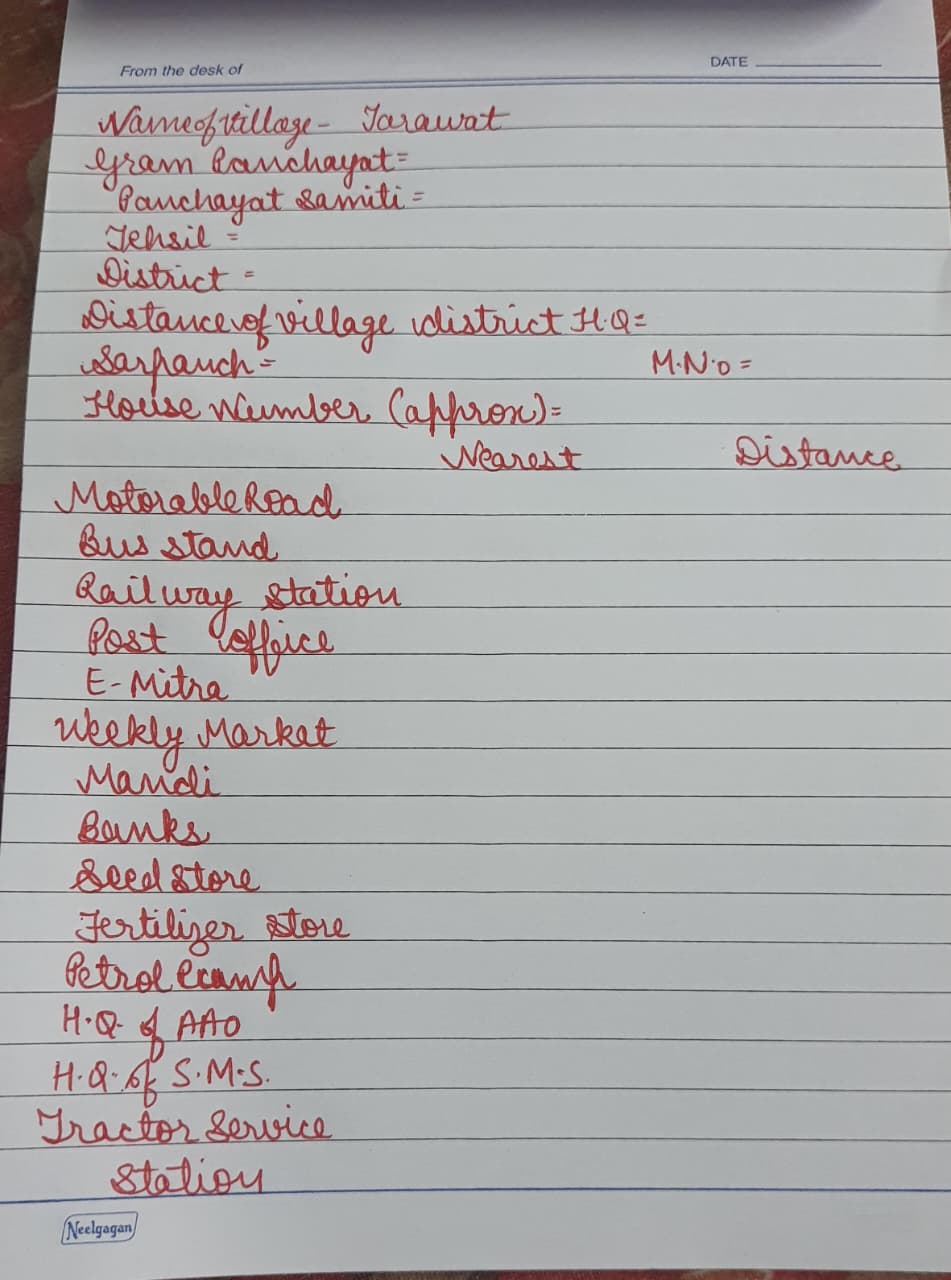 From the desk of DATE
Name of Village - Tarawat
Gram Panchayat =
Panchayat Samiti =
Tehsil =
District =
Distance of village district H.Q =
Sarpanch = M.N.o =
House Number (approx) =
Nearest Distance
Motorable Road
Bus stand
Railway station
Post office
E-Mitra
Weekly Market
Mandi
Banks
Seed Store
Fertilizer store
Petrol Pump
H.Q. of AAO
H.Q. of S.M.S.
Tractor Service
Station
Neelgagan